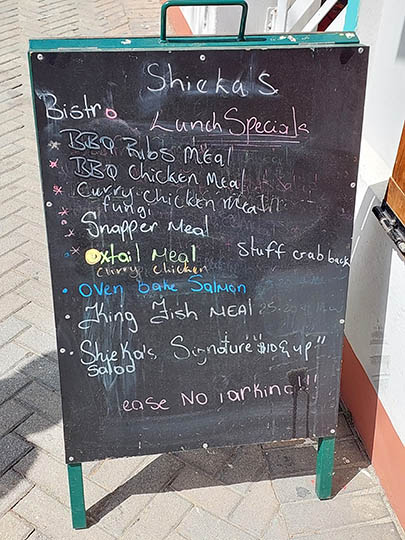 Shieka's
Bistro
Lunch Specials
BBQ Ribs Meal
BBQ Chicken Meal
Curry Chicken Meal
fungi
Snapper Meal
Oxtail Meal
Stuff crab back
curry chicken
oven bake Salmon
King Fish MEAL
Shieka's Signature "$10 & up"
Salad
ease NO arking!!!